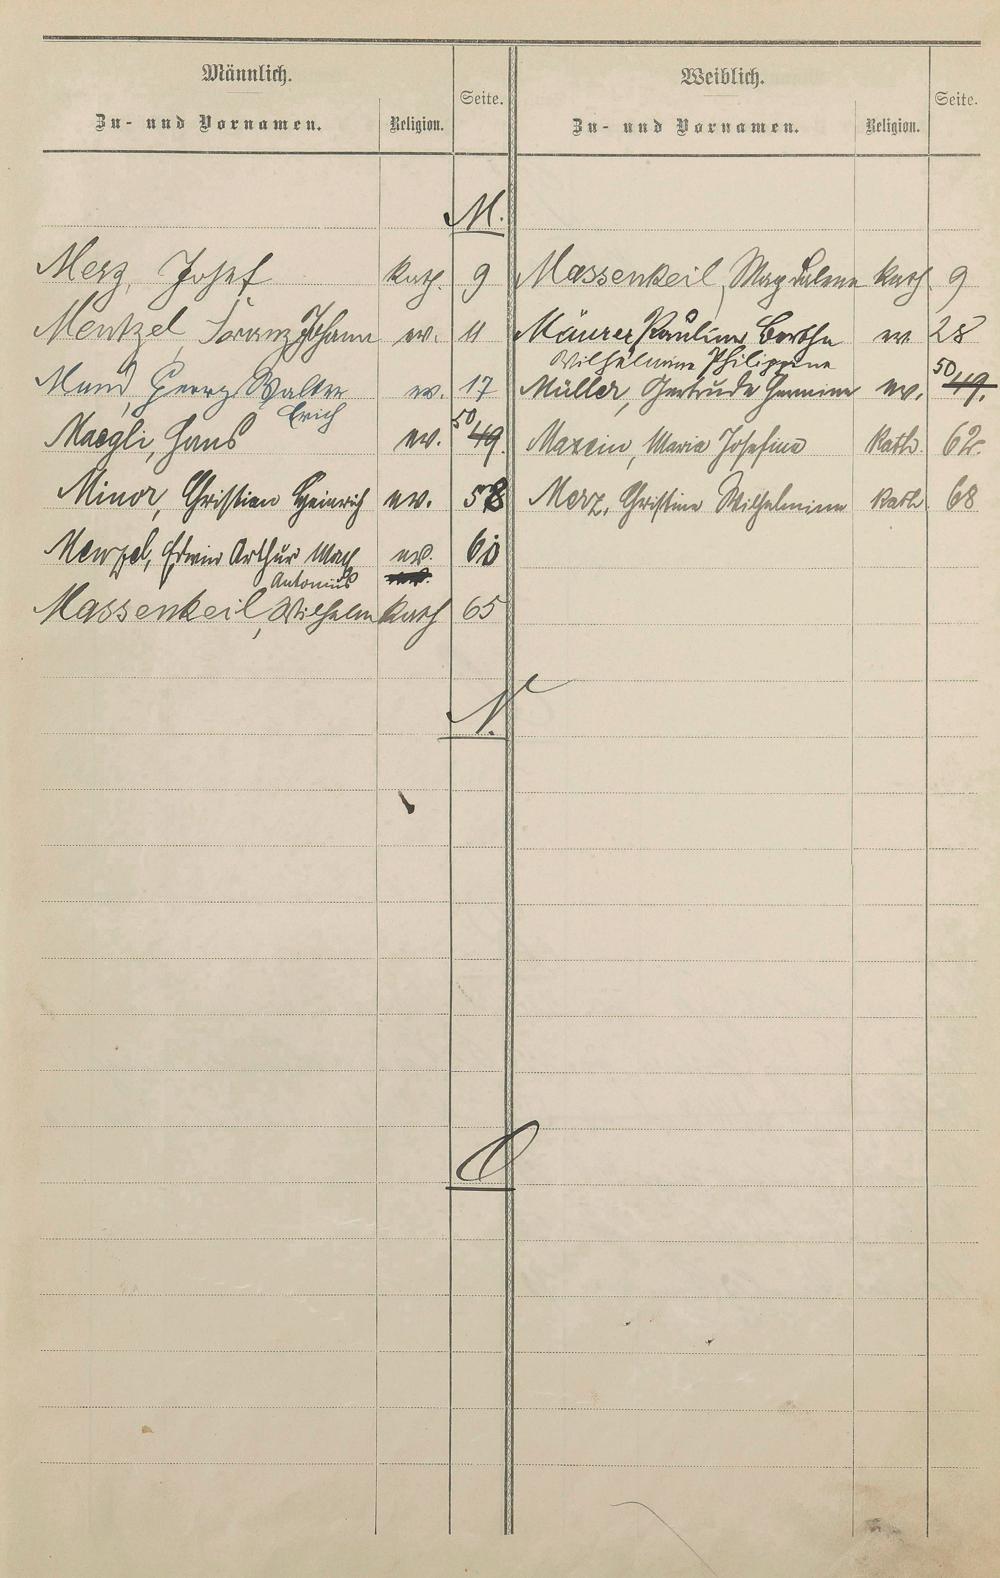 Männlich. Weiblich.
Seite. Seite.
Zu- und Vornamen. Religion. Zu- und Vornamen. Religion.
M.
Merz, Josef kath. 9 Massenkeil, Magdalene kath. 9
Mentzel, Franz Johann ev. 11 Mäurer, Pauline Bertha ev. 28
Wilhelmine Philippine
Mund, Georg Walter ev. 17 Müller, Gertrude Hermine ev. 50 49.
Erich
Maegli, Hans ev. 50 49. Marxin, Maria Josefine kath. 62
Minor, Christian Heinrich ev. 58 Merz, Christine Wilhelmine kath. 68
Menzel, Edwin Arthur Max ev. 60
Antonius
Massenkeil, Wilhelm kath 65
N.
O